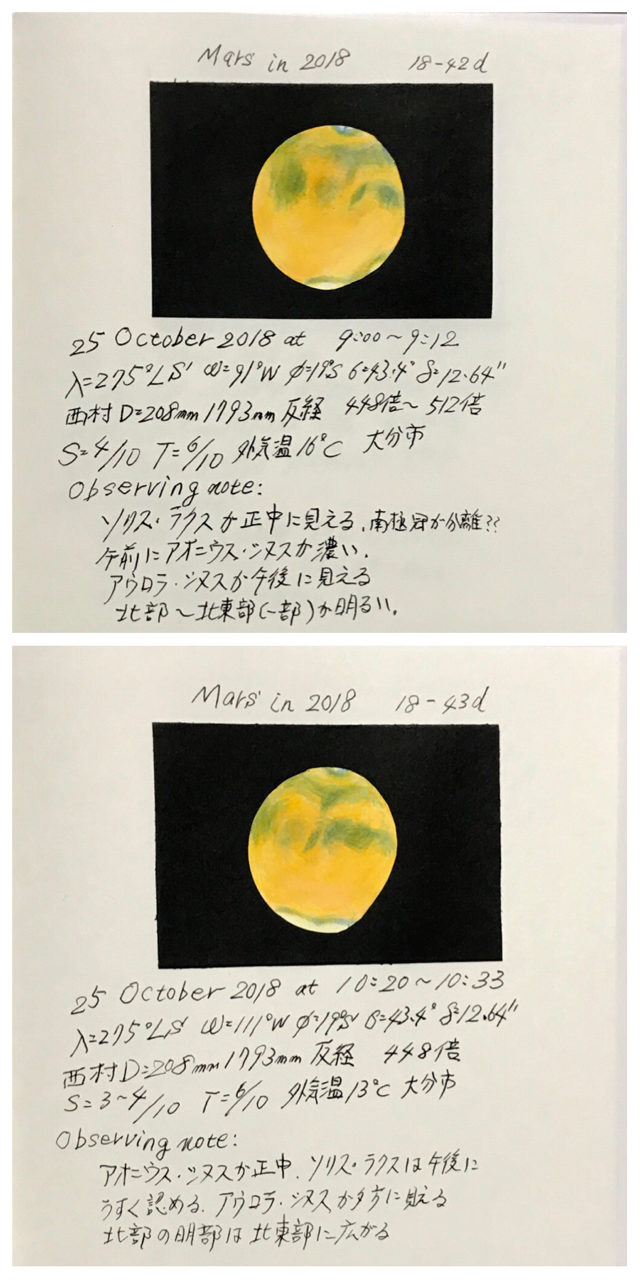 Mars in 2018 18-42d
25 October 2018 at 9:00~9:12
λ=275°LS ω=91°W φ=19°S δ=43.4° δ=12.64"
西村 D=208mm 1793mm 反経 448倍~512倍
S=4/10 T=6/10 外気温16℃ 大分市
Observing note:
ソリス・ラクスが正中に見える、南極冠が分離??
午前にアオニウス・シヌスが濃い。
アウロラ・シヌスが午後に見える
北部~北東部(一部)が明るい。
Mars in 2018 18-43d
25 October 2018 at 10:20~10:33
λ=275°LS ω=111°W φ=19°S δ=43.4° δ=12.64"
西村 D=208mm 1793mm 反経 448倍
S=3~4/10 T=6/10 外気温13℃ 大分市
Observing note:
アオニウス・シヌスが正中、ソリス・ラクスは午後に
うすく認める。アウロラ・シヌスが夕方に見える
北部の明部は北東部に広がる